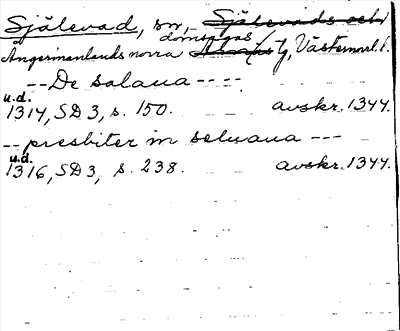 Själevad, sn, Själevads och
domsagas
Ångermanlands norra t, Västernorl. l.
--De salaua----
u.d.
1314, SD 3, s. 150. avskr. 1344.
--presbiter in seluaua ---
u.d.
1316, SD 3, s. 238. avskr. 1344.